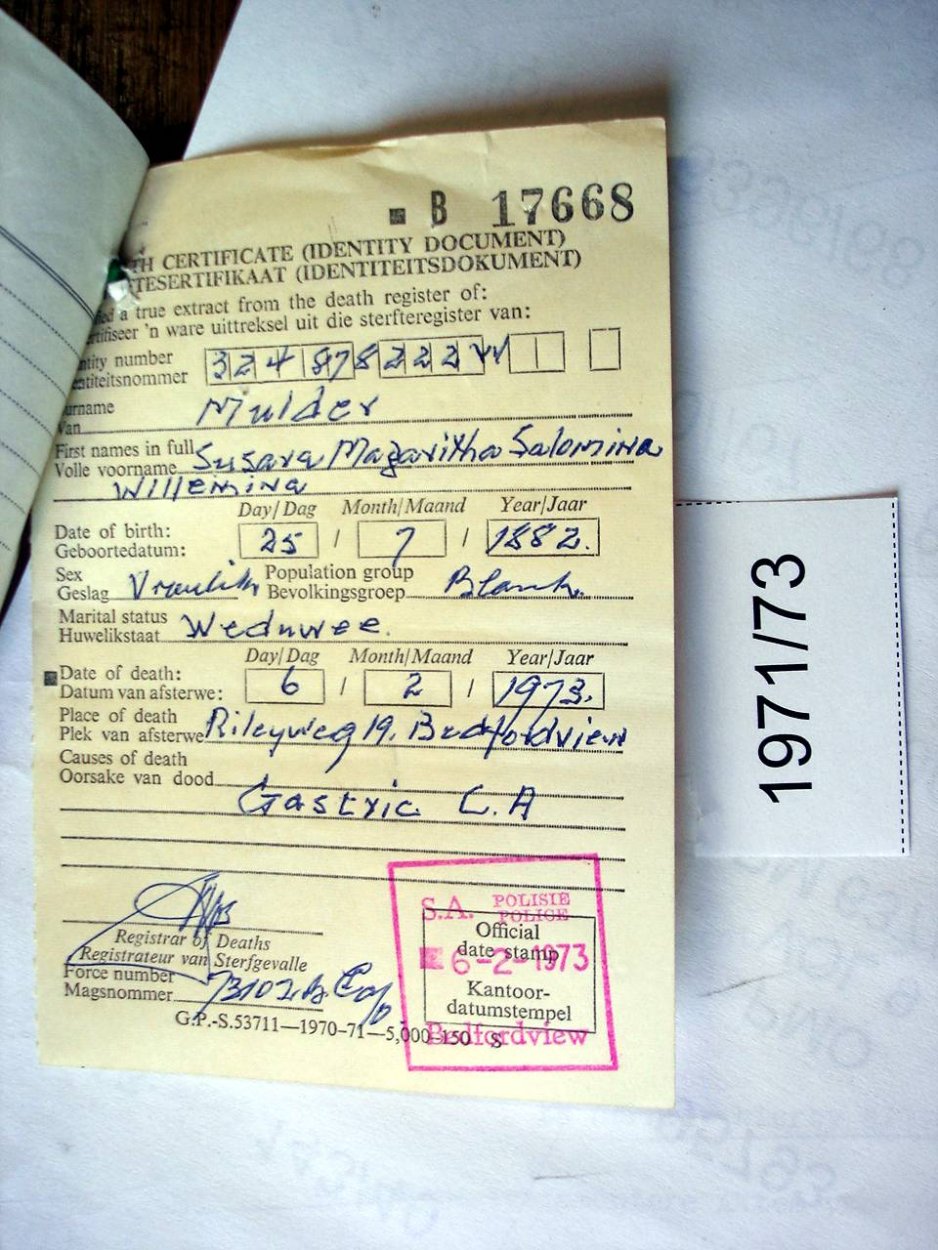 B 17668
TH CERTIFICATE (IDENTITY DOCUMENT)
TESERTIFIKAAT (IDENTITEITSDOKUMENT)
a true extract from the death register of:
rtifiseer 'n ware uittreksel uit die sterfteregister van:
tity number
entiteitsnommer 324 878 222 W
urname
Van Mulder
First names in full
Volle voorname Susara Magaritha Salomina
Willemina
Day/Dag Month/Maand Year/Jaar
Date of birth:
Geboortedatum: 25 / 7 / 1882.
Sex Population group
Geslag Vroulik Bevolkingsgroep Blank.
Marital status
Huwelikstaat Weduwee.
Day/Dag Month/Maand Year/Jaar
Date of death:
Datum van afsterwe: 6 / 2 / 1973.
Place of death
Plek van afsterwe Rileyweg 19. Bedfordview
Causes of death
Oorsake van dood
Gastric C.A
Registrar of Deaths
Registrateur van Sterfgevalle
Force number
Magsnommer
G.P.-S.53711—1970-71—5,000-150 S
S.A. POLISIE
POLICE
Official
date stamp
6-2-1973
Kantoor-
datumstempel
Bedfordview
1971/73